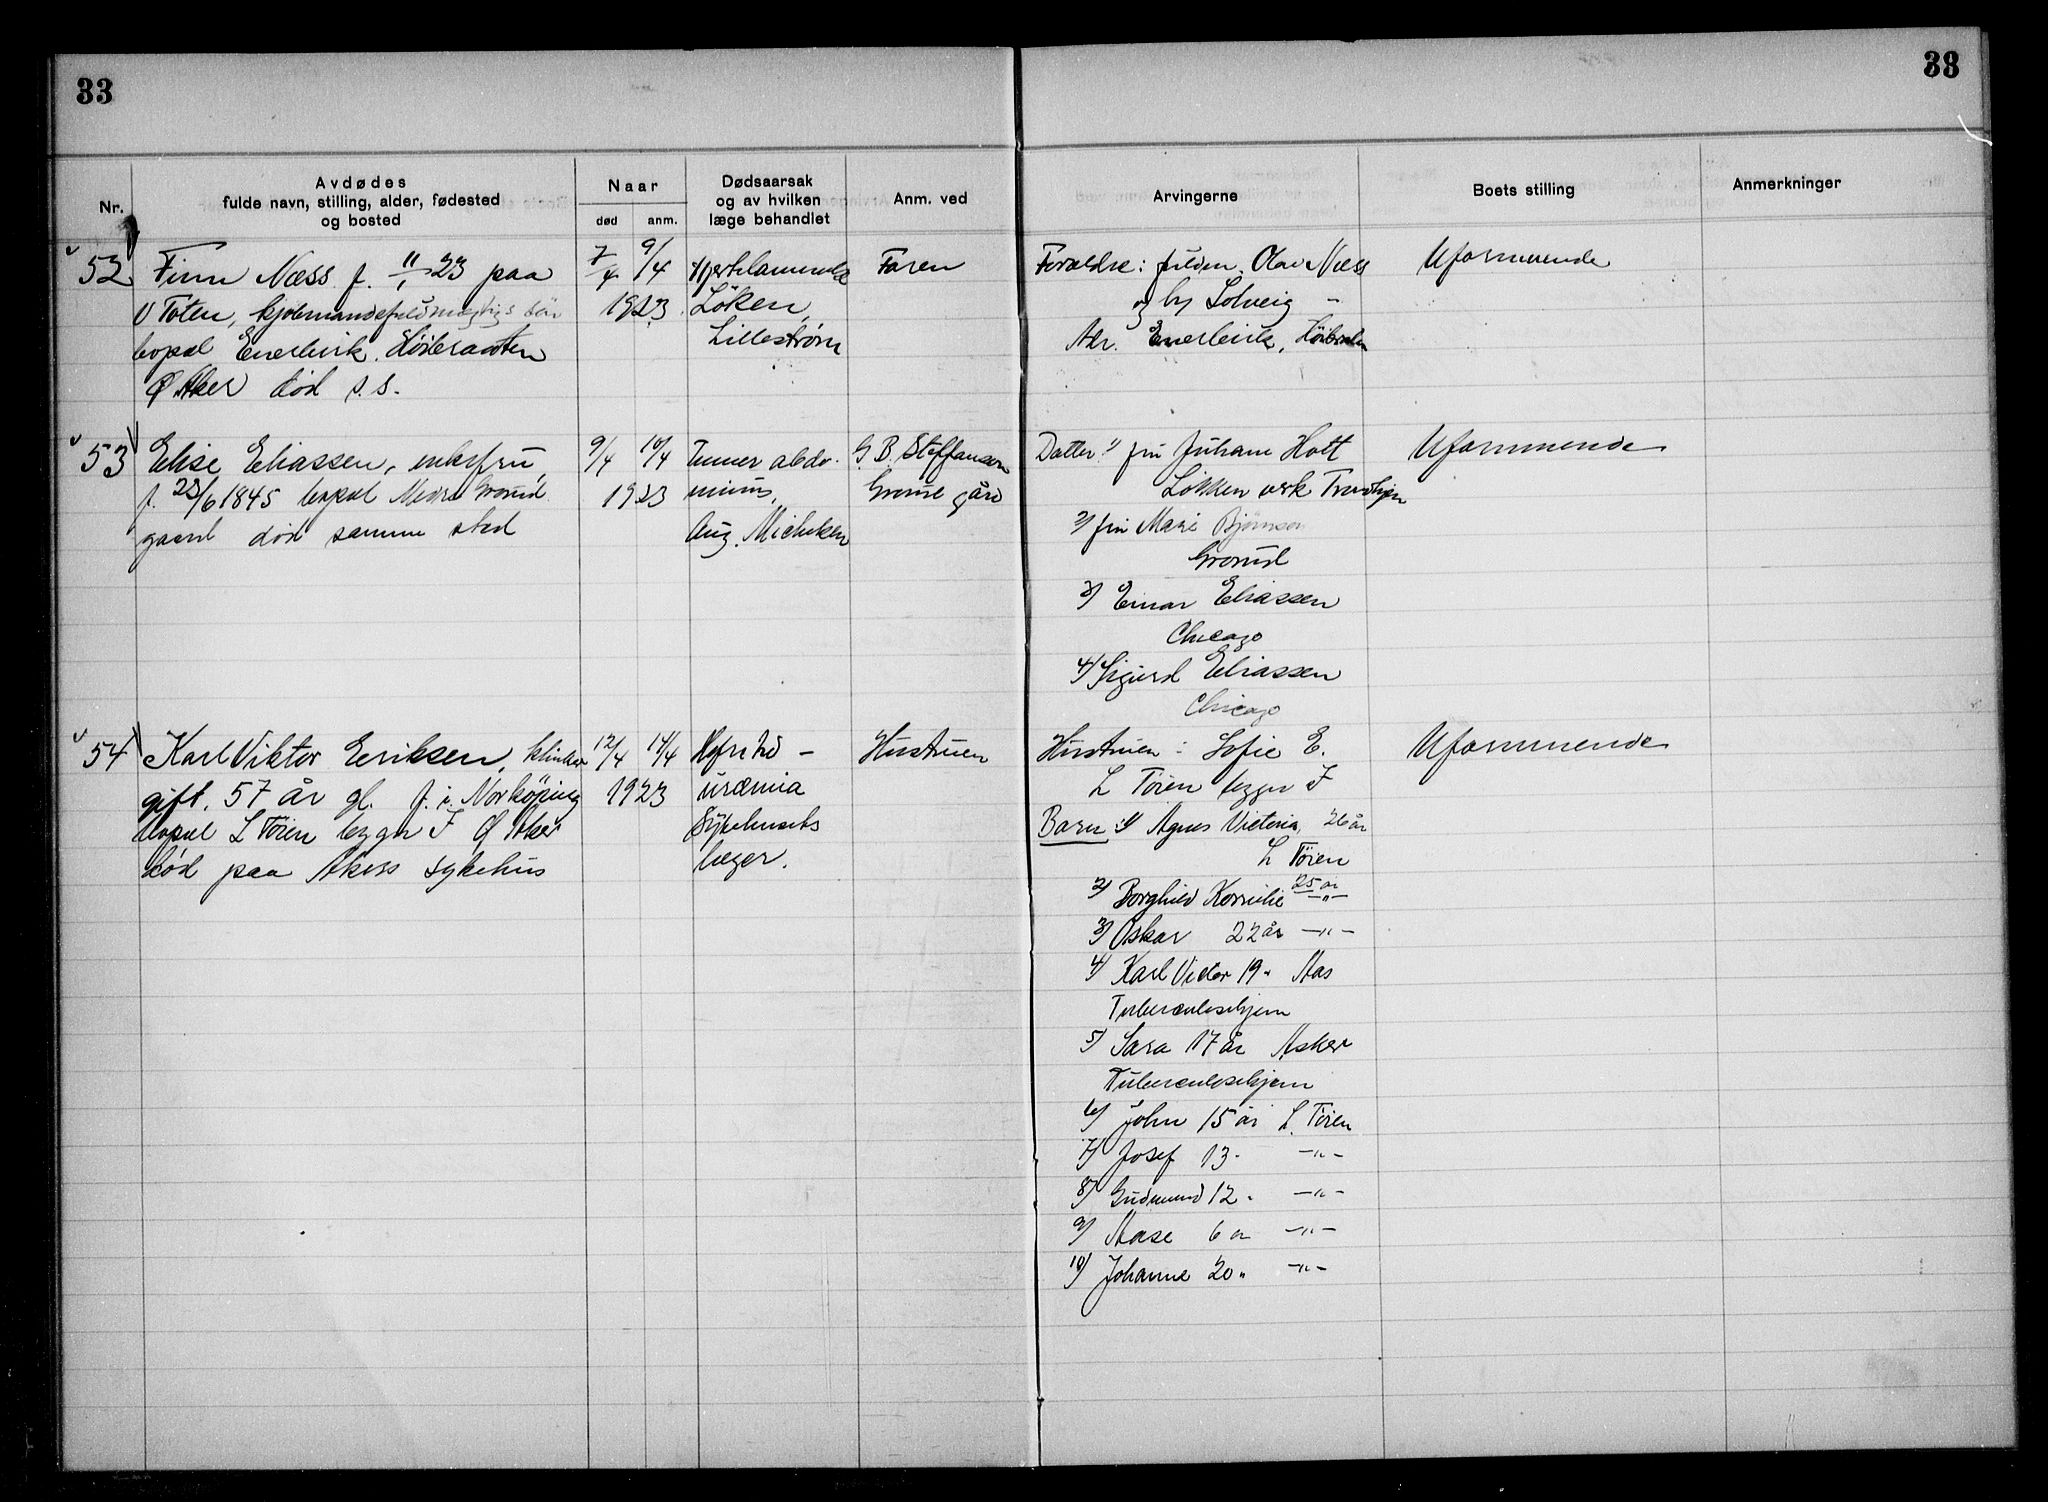 33
33
Nr.
Avdødes
fulde navn, stilling, alder, fødested
og bosted
Naar
død
anm.
Dødsaarsak
og av hvilken
læge behandlet
Anm. ved
Arvingerne
Boets stilling
Anmerkninger
52
Finn Næss f. 11/1 23 paa
V Toten, kjøbmandsfuldmægtigs søn
bopæl Enerhvik, Høibraaten
Ø Aker død s.s.
7/4 9/4
1923
Hjertelammelse
Löken,
Lillestrøm
Faren
Forældre: fuldm. Olav Næss
og h Solveig "
Adr. Enerhvik, Høibraaten
Uformuende
53
Elise Eliassen, enkefru
f. 23/6 1845 bopæl Nedre Grorud
gaard død samme sted
9/4 10/4
1923
Tumor abdo-
minis,
Aug. Michelsen
G. B. Steffensen
Grorud gård
Datter: 1) fru Juhane Holt
Løkken verk Trondhjem
2) fru Marie Bjørnsen
Grorud
3) Einar Eliassen
Chicago
4) Sigurd Eliassen
Chicago
Uformuende
54
Karl Viktor Eriksen,
gift. 57 år gl. f. i. Norköping
bopæl L Tøien bygn I Ø Aker
død paa Akers sykehus
12/4 14/4
1923
Nefritid –
uræmia
Sykehusets
læger.
Hustruen
Hustruen: Sofie E.
L Tøien bygn I
Barn: 1) Agnes Victoria, 26 år
L Tøien
2) Borghild Kornelie 25 år —"—
3) Oskar 22 år —"—
4) Karl Victor 19 " Aas
Tuberculosehjem
5) Sara 17 år Asker
Tuberculosehjem
6) John 15 år L. Tøien
7) Josef 13 " —"—
8) Gudmund 12 " —"—
9) Aase 6 " —"—
10) Johanne 20 " —"—
Uformuende